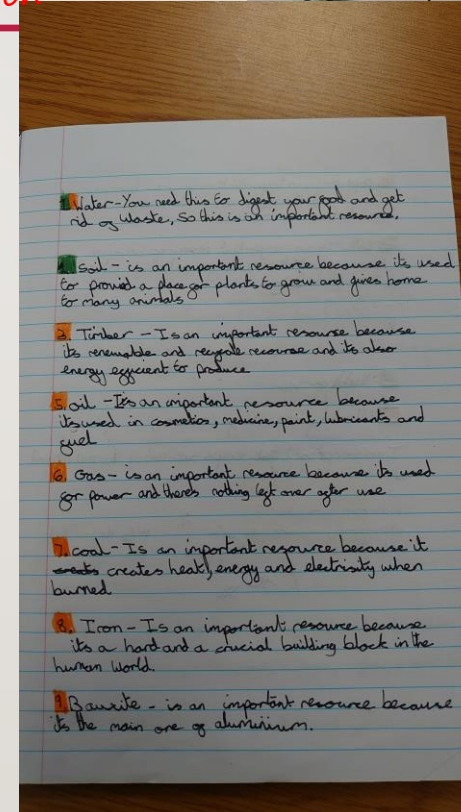 1. Water - You need this to digest your food and get
rid of waste, So this is an important resource.
4. Soil - is an important resource because its used
to provied a place for plants to grow and gives home
to many animals
3. Timber - Is an important resourse because
its renewable and recycle recourse and its also
energy efficient to produce
5. oil - Its an important ressource because
its used in cosmetics, medicine, paint, lubricants and
fuel
6. Gas - is an important resource because its used
for power and theres nothing left over after use
7. coal - Is an important resource because it
creates heat, energy and electrisity when
burned
8. Iron - Is an important resource because
its a hard and a crucial building block in the
human world.
9. Bauxite - is an important resource because
its the main ore of aluminium.